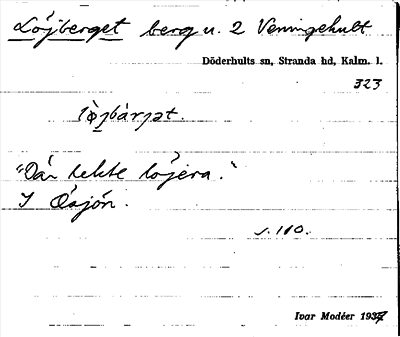 Löjberget berg u. 2 Verningehult
Döderhults sn, Stranda hd, Kalm. l.
323
"Där lekte löjera."
I Ösjön.
s. 110.
Ivar Modéer 1937